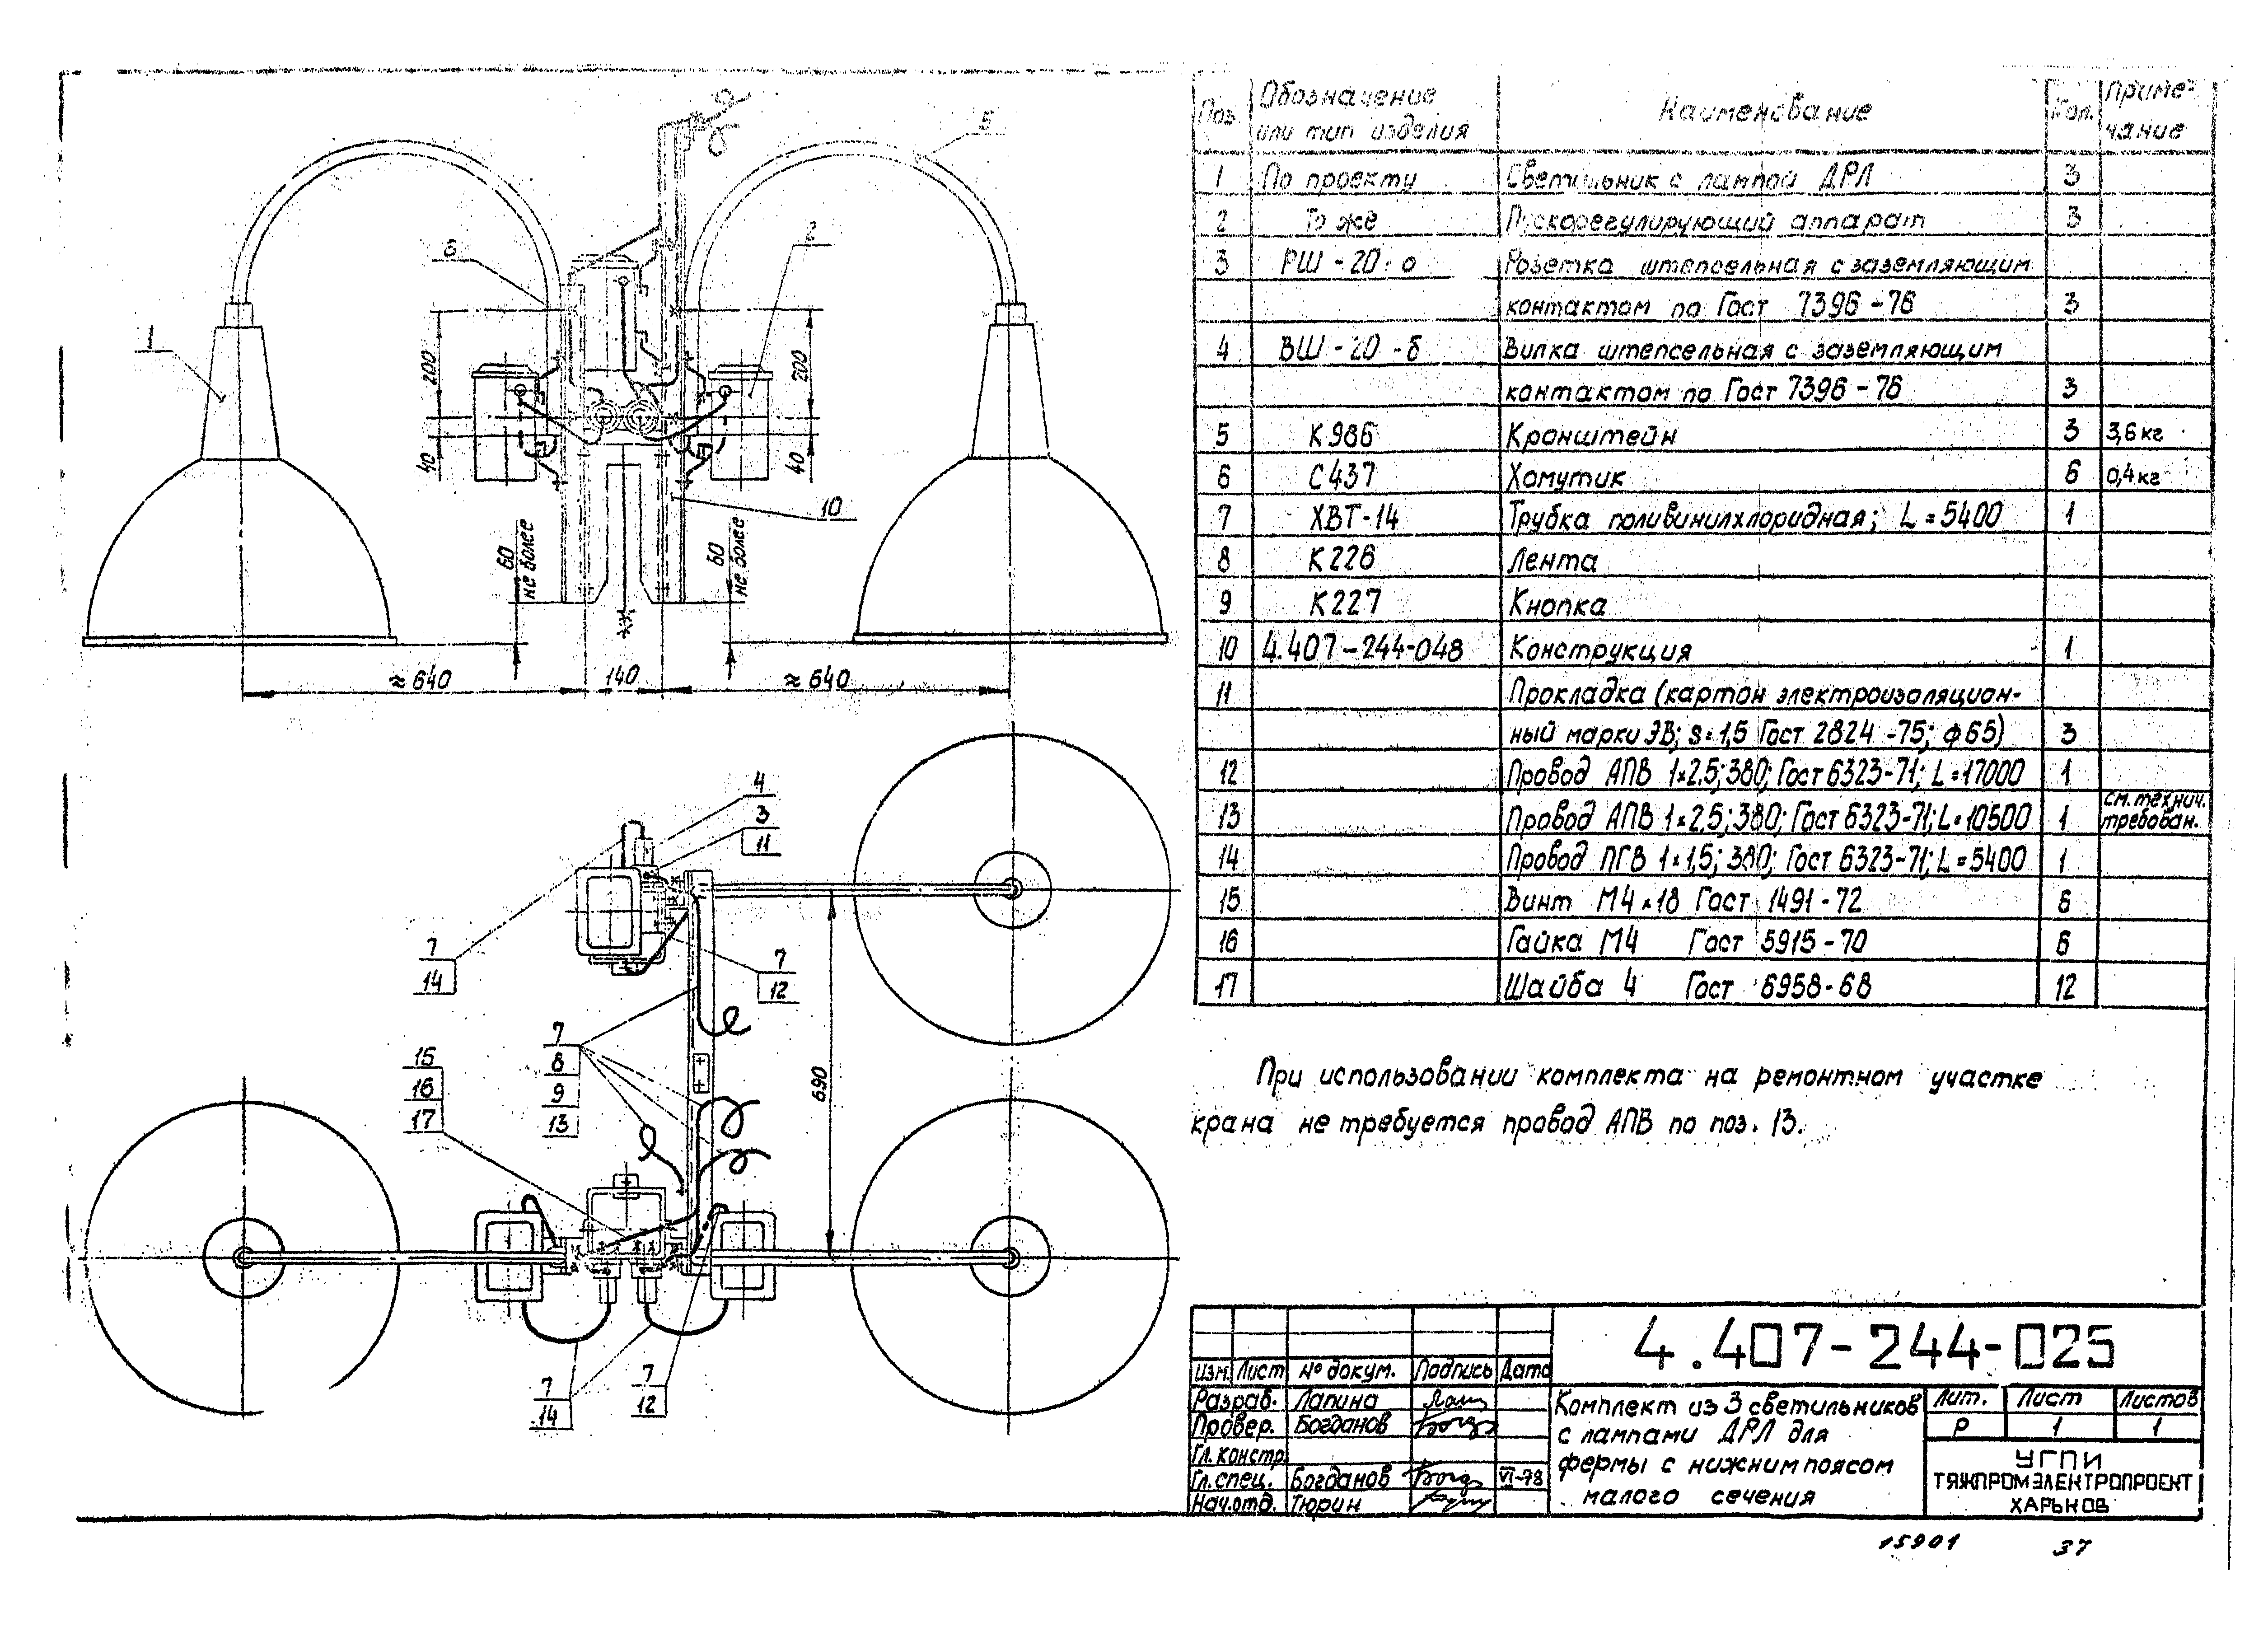 5
2
6
1
200
200
40
40
10
60
не более
60
не более
≈640
140
≈640
4
3
11
7
14
7
12
7
8
9
13
15
16
17
690
7
14
7
12
Поз. Обозначение или тип изделия Наименование Кол. Примечание
1 По проекту Светильник с лампой ДРЛ 3
2 То же Пускорегулирующий аппарат 3
3 РШ-20- о Розетка штепсельная с заземляющим
контактом по Гост 7396-76 3
4 ВШ-20-б Вилка штепсельная с заземляющим
контактом по Гост 7396-76 3
5 К986 Кронштейн 3 3,6кг
6 С437 Хомутик 6 0,4кг
7 ХВТ-14 Трубка поливинилхлоридная; L=5400 1
8 К226 Лента
9 К227 Кнопка
10 4.407-244-048 Конструкция 1
11 Прокладка (картон электроизоляцион-
ный марки ЭВ; s=1,5 Гост 2824-75; ф65) 3
12 Провод АПВ 1×2,5; 380; Гост 6323-71; L=17000 1
13 Провод АПВ 1×2,5; 380; Гост 6323-71; L=10500 1 см. технич. требован.
14 Провод ПГВ 1×1,5; 380; Гост 6323-71; L=5400 1
15 Винт М4×18 Гост 1491-72 6
16 Гайка М4 Гост 5915-70 6
17 Шайба 4 Гост 6958-68 12
При использовании комплекта на ремонтном участке
крана не требуется провод АПВ по поз. 13.
4.407-244-025
Изм. Лист № докум. Подпись Дата
Разраб. Лапина
Провер. Богданов
Гл. констр.
Гл. спец. Богданов VI-78
Нач. отд. Тюрин
Комплект из 3 светильников
с лампами ДРЛ для
фермы с нижним поясом
малого сечения
Лит. Лист Листов
Р 1 1
УГПИ
ТЯЖПРОМЭЛЕКТРОПРОЕКТ
ХАРЬКОВ
15901 37